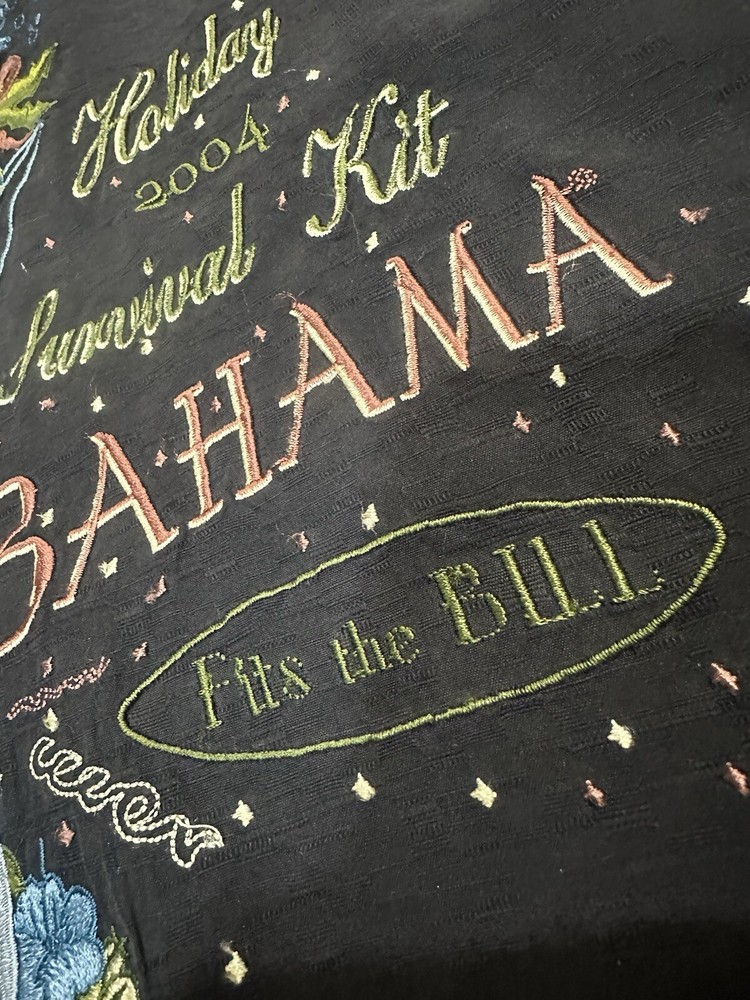 Holiday
2004
Survival Kit
BAHAMA
Fits the BILL